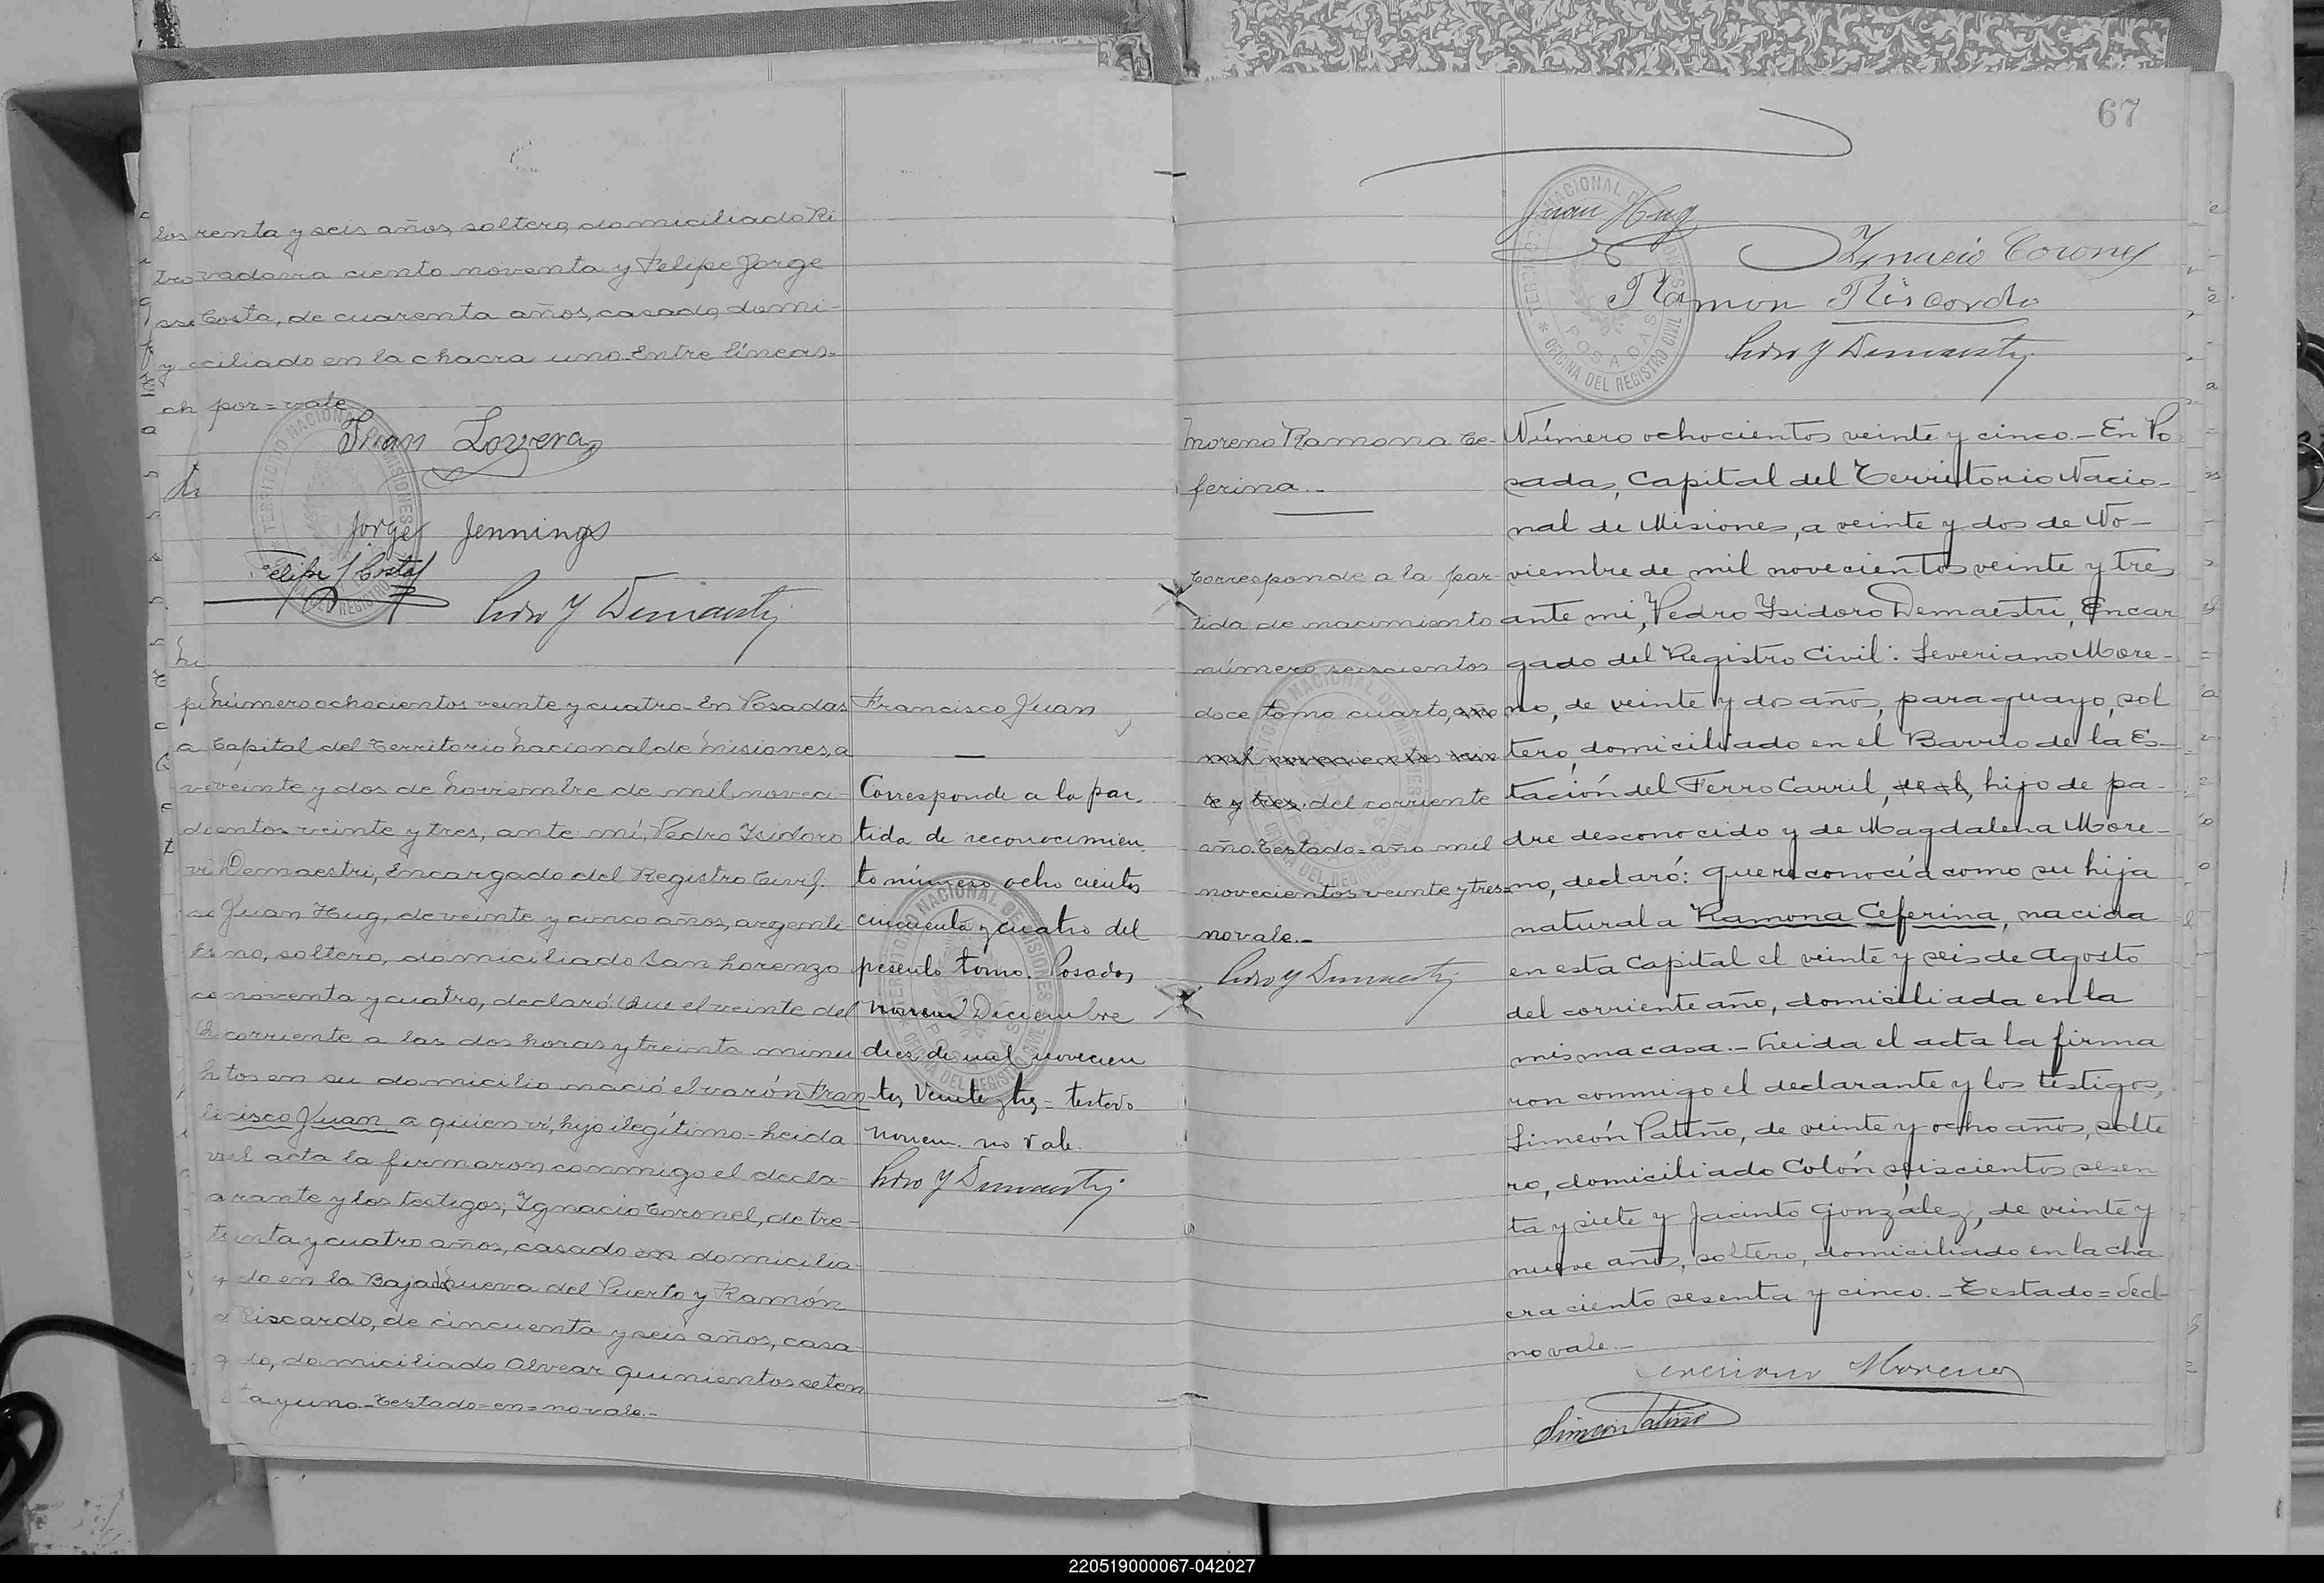 renta y seis años, soltero, domiciliado Ri
vadavia ciento noventa y Felipe Jorge
Costa, de cuarenta años, casado, domi-
ciliado en la chacra uno. Entre líneas=
por=vale
Juan Lovera
Jorge Jennings
Felipe J Costa
Pedro Y Demaestri
Número ochocientos veinte y cuatro_En Posadas
Capital del Territorio Nacional de Misiones, a
veinte y dos de Noviembre de mil noveci-
entos veinte y tres, ante mí, Pedro Ysidoro
Demaestri, Encargado del Registro Civil:
Juan Hug, de veinte y cinco años, argenti-
no, soltero, domiciliado San Lorenzo
noventa y cuatro, declaró: Que el veinte del
corriente a las dos horas y treinta minu
tos en su domicilio nació el varón Fran-
cisco Juan a quien ví, hijo ilegítimo-Leida
el acta la firmaron conmigo el decla-
rante y los testigos, Ygnacio Coronel, de tre-
inta y cuatro años, casado en domicilia-
do en la Bajada nueva del Puerto y Ramón
Riscardo, de cincuenta y seis años, casa-
do, domiciliado Alvear quinientos seten
ta y uno_Testado=en=no vale.-
Francisco Juan
Corresponde a la par-
tida de reconocimien
to número ocho cientos
cincuenta y cuatro del
presente tomo. Posadas,
noviem Diciembre
diez de mil novecien
tos veinte y tres = testado
noviem. no vale.
Pedro Y Demaestri
67
Juan Hug
Ygnacio Coronel
Ramon Riscardo
Pedro Y Demaestri
Moreno Ramona Ce-
ferina._
Corresponde a la par-
tida de nacimiento
número seiscientos
doce tomo cuarto, año
mil novecientos vein
te y tres, del corriente
año. Testado=año mil
novecientos veinte y tres=
no vale._
Pedro Y Demaestri
Número ochocientos veinte y cinco._En Po
sadas, Capital del Territorio Nacio-
nal de Misiones, a veinte y dos de No-
viembre de mil novecientos veinte y tres
ante mi, Pedro Ysidoro Demaestri, Encar
gado del Registro Civil: Severiano More-
no, de veinte y dos años, paraguayo, sol
tero, domiciliado en el Barrio de la Es-
tación del Ferro Carril, de el, hijo de pa-
dre desconocido y de Magdalena More-
no, declaró: que reconocía como su hija
natural a Ramona Ceferina, nacida
en esta Capital el veinte y seis de Agosto
del corriente año, domiciliada en la
misma casa._Leida el acta la firma
ron conmigo el declarante y los testigos,
Simeón Patiño, de veinte y ocho años, solte
ro, domiciliado Colón seiscientos sesen
ta y siete y Jacinto González, de veinte y
nueve años, soltero, domiciliado en la cha
cra ciento sesenta y cinco._Testado=del=
no vale._
Severiano Moreno
Simeon Patiño
TERRITORIO NACIONAL DE MISIONES
POSADAS
OFICINA DEL REGISTRO CIVIL
220519000067-042027